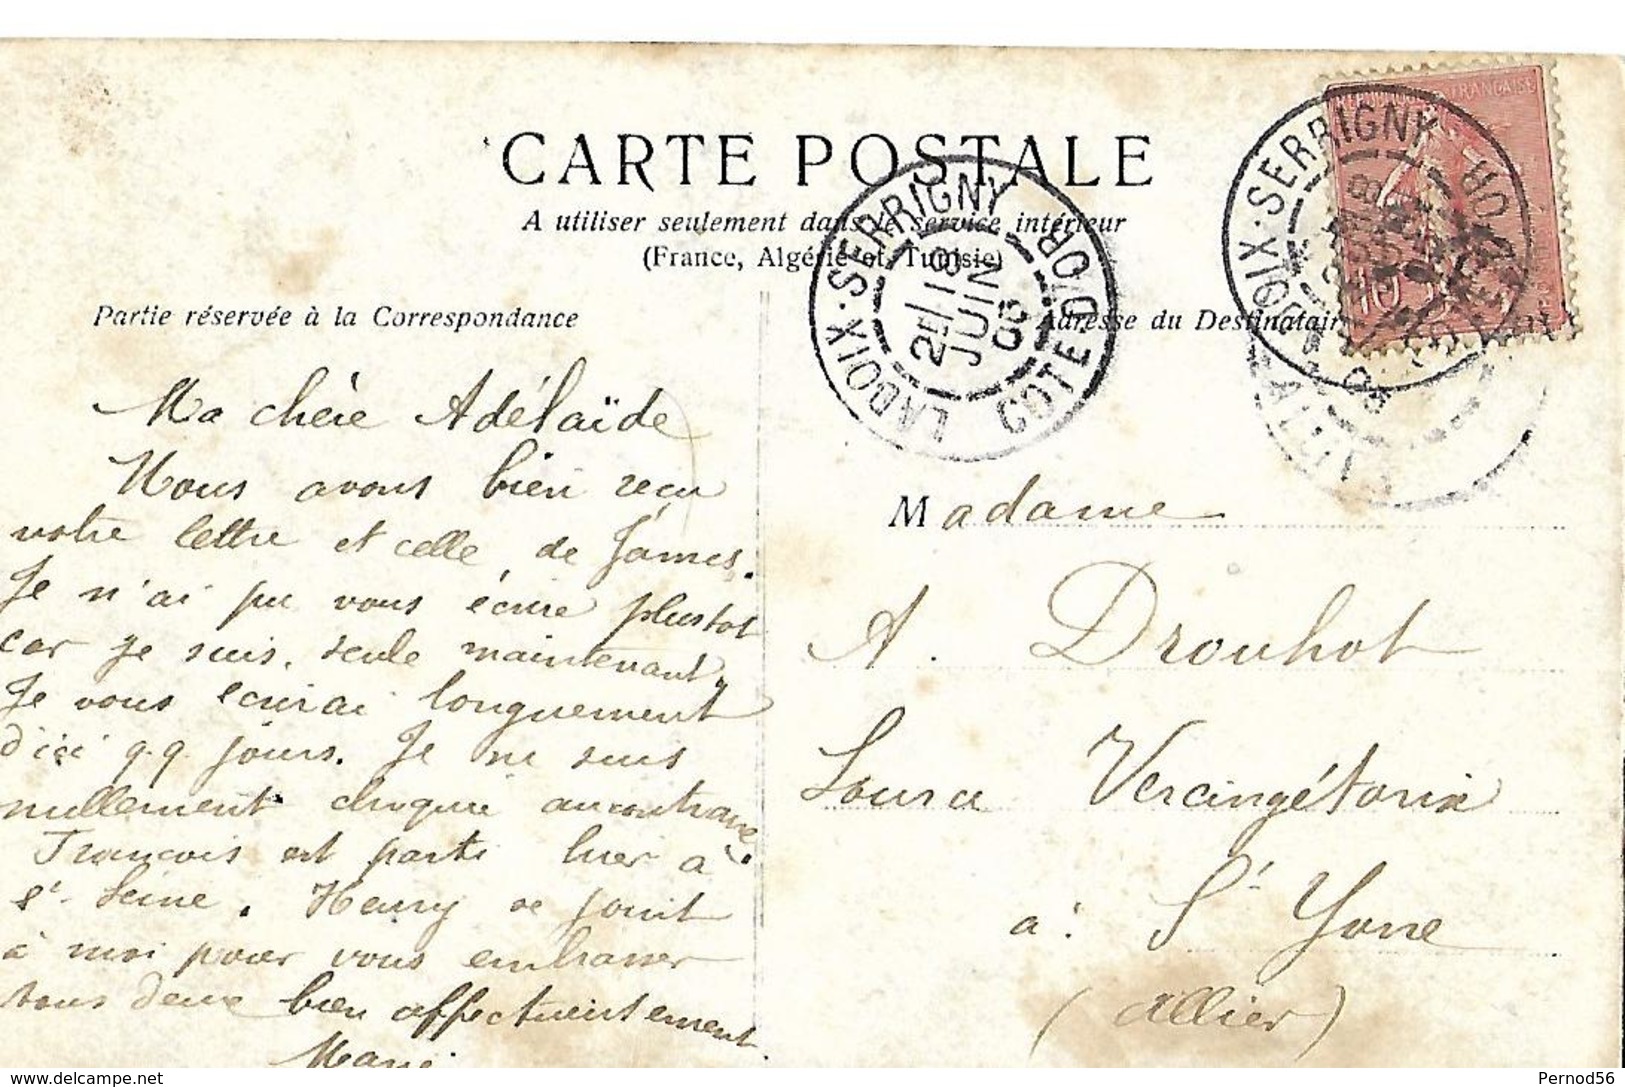 CARTE POSTALE
A utiliser seulement dans le service intérieur
(France, Algérie et Tunisie)
Partie réservée à la Correspondance
Adresse du Destinataire
LADOIX·SERRIGNY
COTE D'OR
JUIN
06
LADOIX·SERRIGNY
COTE D'OR
REPUBLIQUE FRANÇAISE
10
Ma chère Adélaïde
Nous avons bien reçu
votre lettre et celle de James.
Je n'ai pu vous écrire plustot
car je suis seule maintenant,
Je vous ecrirai longuement
d'ici q.q. jours. Je ne suis
nullement au contraire.
François est parti hier à
St-Seine. Henry se joint
à moi pour vous embrasser
tous deux bien affectueusement.
Marie
Madame
A. Drouhot
Source Vercingétorix
à: St Yorre
(Allier)
www.delcampe.net
Pernod56